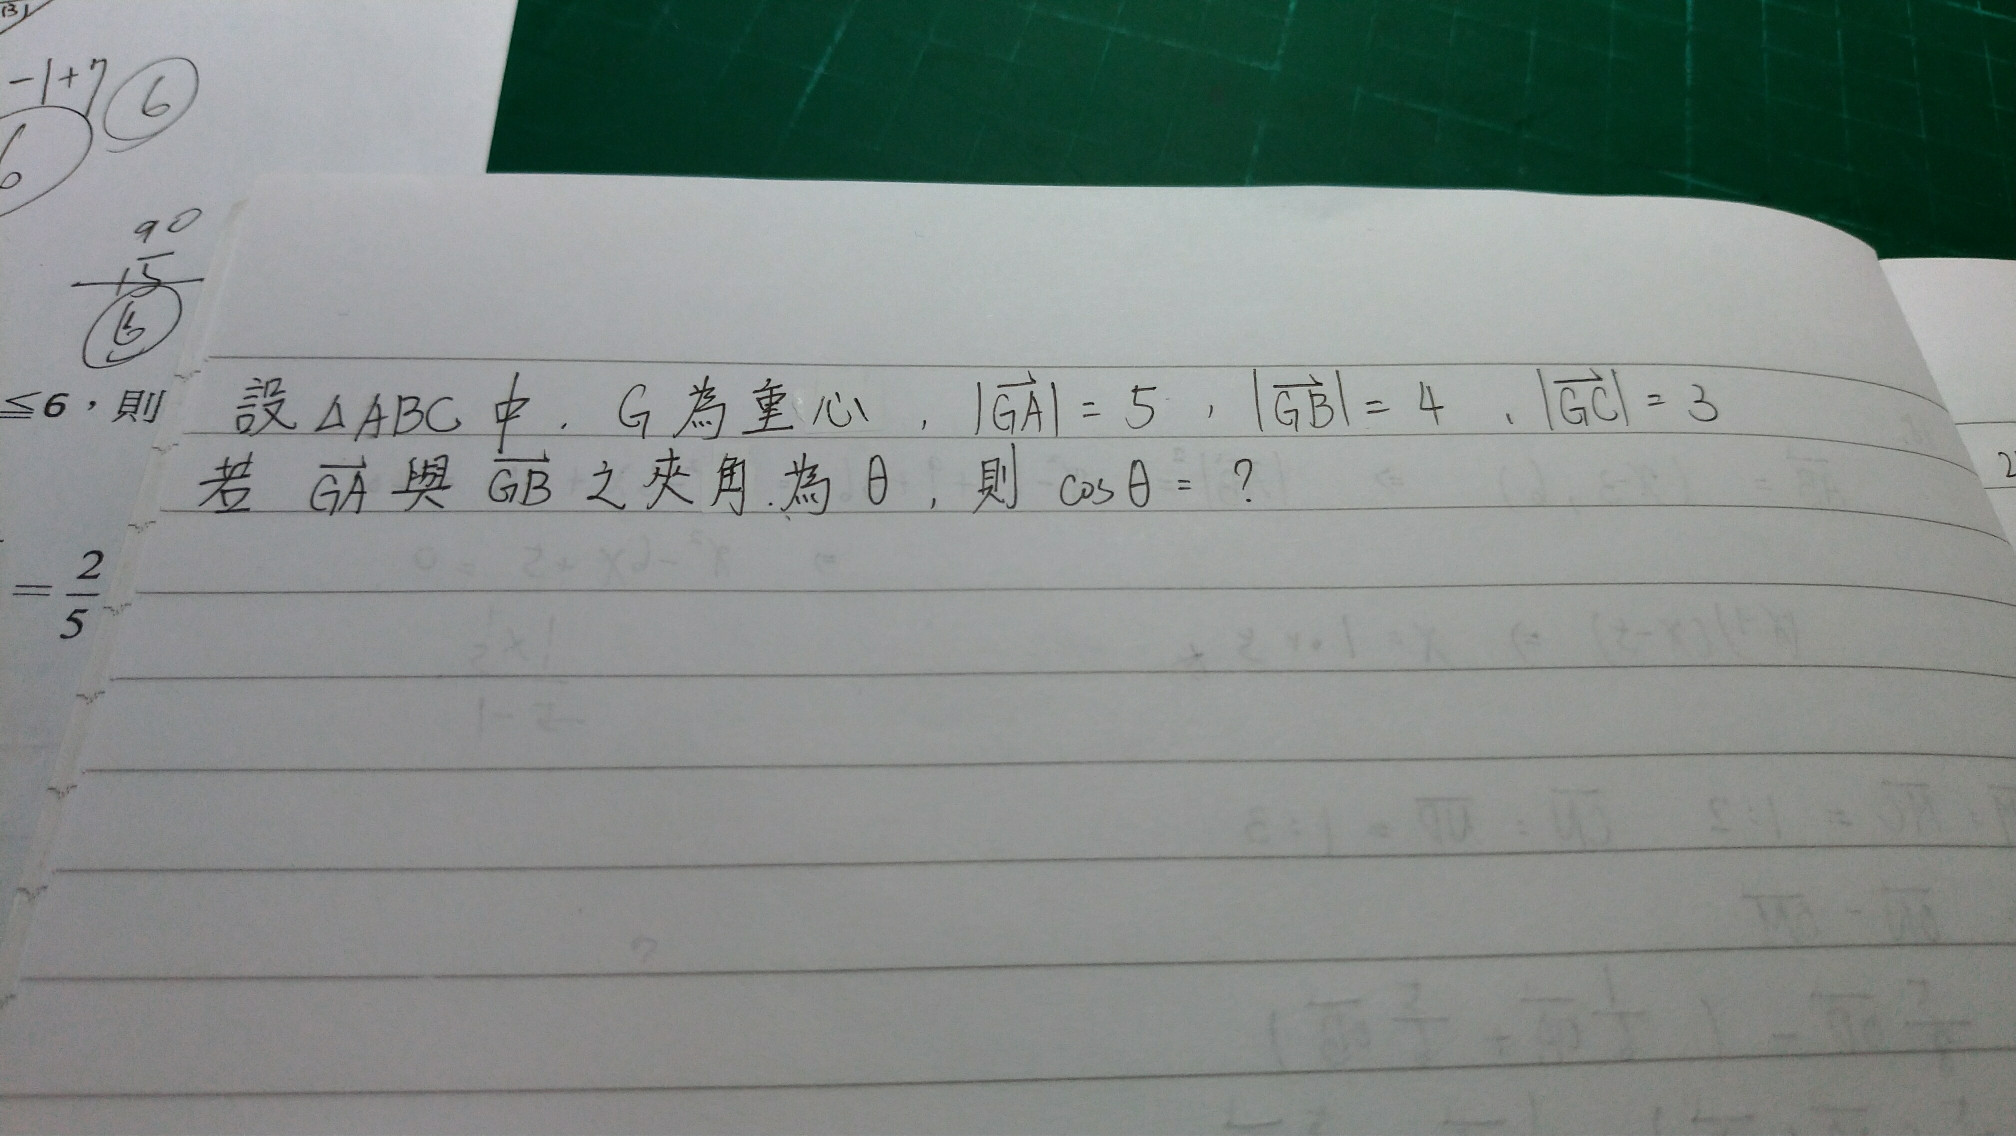 -1+7 6
6
90
15
6
≦6，則
設 △ABC 中, G 為重心, |GA| = 5, |GB| = 4、|GC| = 3
若 GA 與 GB 之夾角為 θ, 則 cosθ = ?
= 2/5